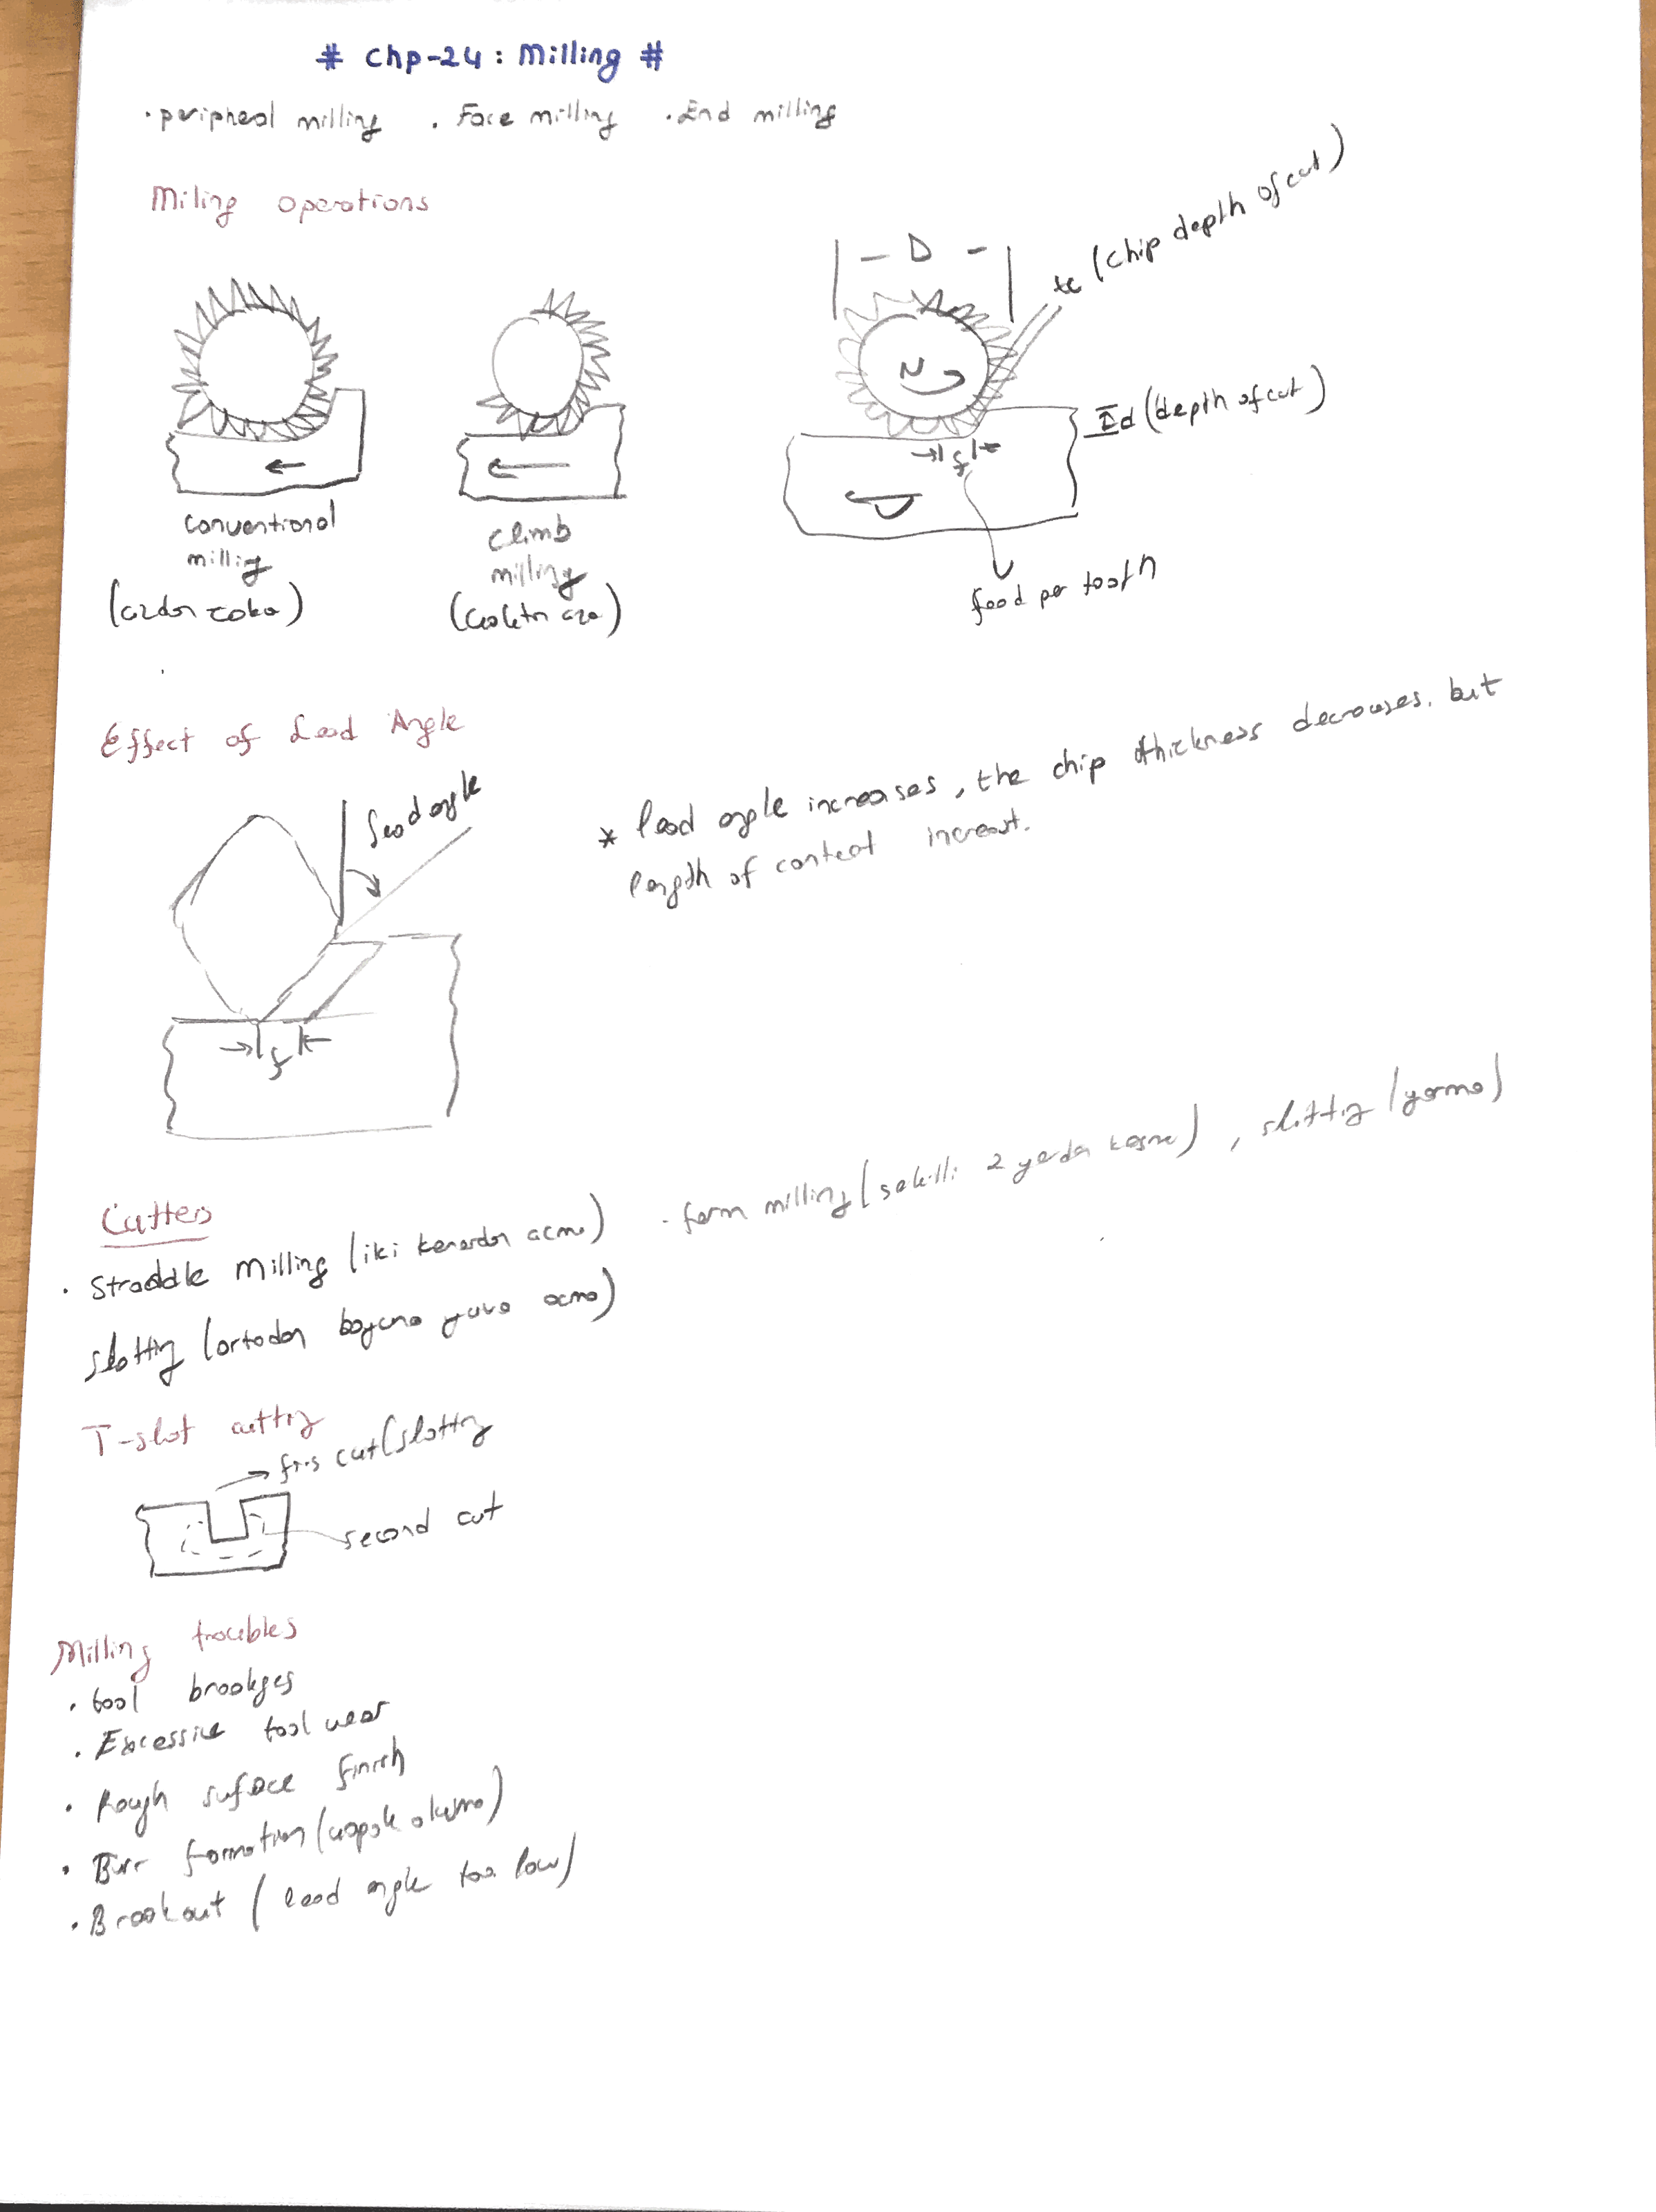 # Chp-24 : Milling #
· peripheal milling . Face milling · End milling
Miling operations
- D -
tc (chip depth of cut)
N
d (depth of cut)
f
feed per tooth
conventional
milling
(azdan çoka)
climb
milling
(çoktan aza)
Effect of Lead Angle
lead angle
* lead angle increases, the chip thickness decreases. but
length of contact increast.
f
Cutters
· Straddle Milling (iki kenardan acma) - form milling (sekilli 2 yerden kesme) , slotting (yarma)
slotting (ortadan boyuna yuva acma)
T-slot cutting
cut (slotting
second cut
Milling troubles
· tool breakges
· Excessive tool wear
· Rough suface finish
· Burr formation (capak oluma)
· Breakout ( lead angle too low)